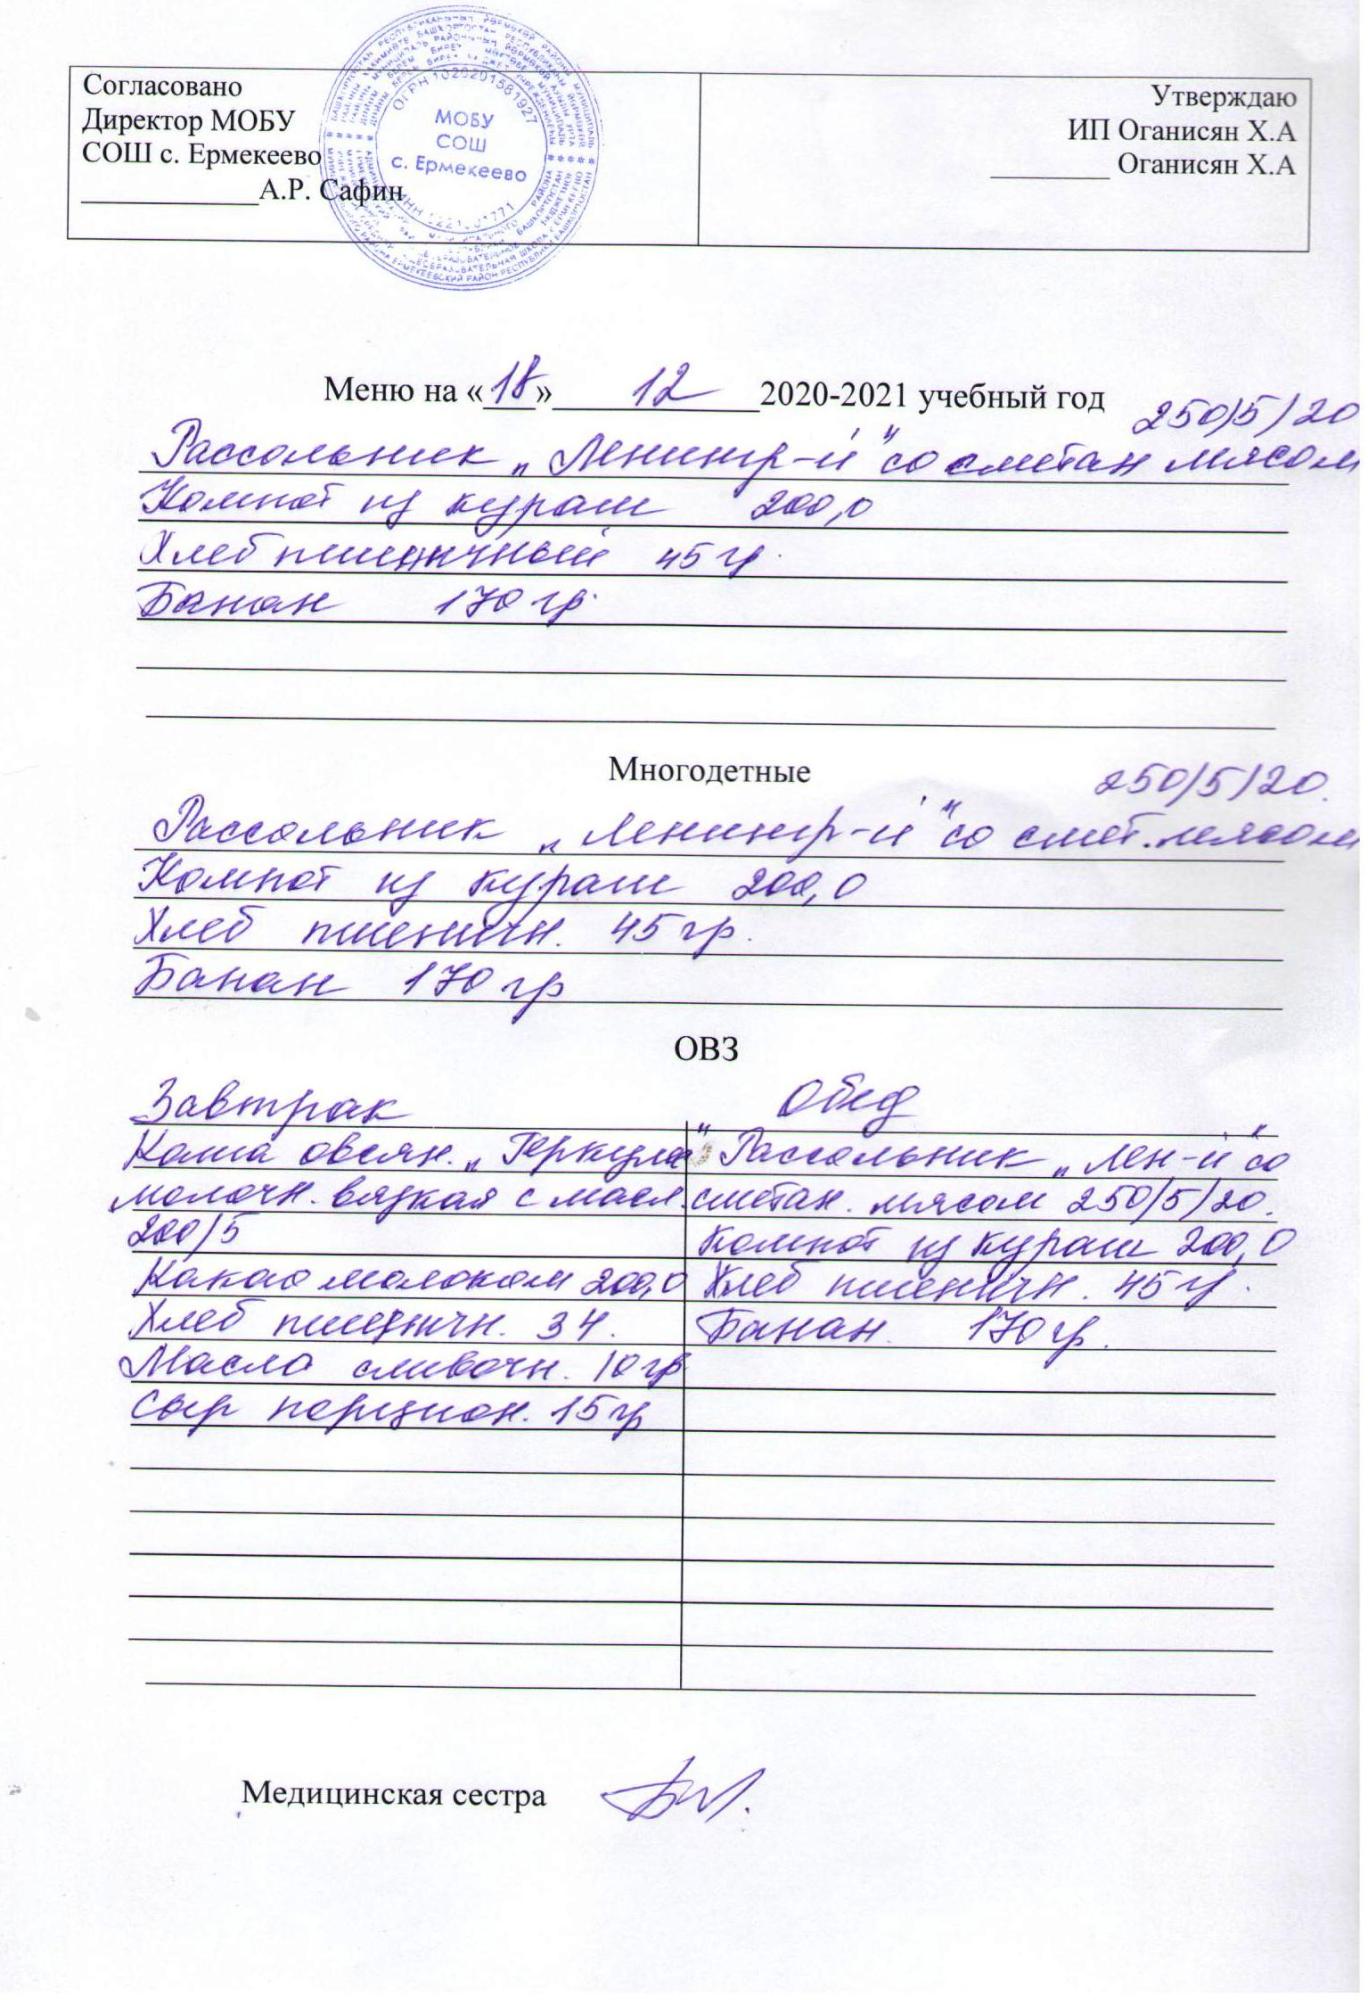 Согласовано
Директор МОБУ
СОШ с. Ермекеево
____________А.Р. Сафин
Утверждаю
ИП Оганисян Х.А
________ Оганисян Х.А
МОБУ
СОШ
с. Ермекеево
Меню на «18» 12 2020-2021 учебный год
250/5/20
Рассольник „Ленингр-й" со сметан мясом
Компот из кураги 200,0
Хлеб пшеничный 45 гр.
Банан 170 гр.
Многодетные
250/5/20.
Рассольник „Ленингр-й" со смет. мясом
Компот из кураги 200,0
Хлеб пшеничн. 45 гр.
Банан 170 гр
ОВЗ
Завтрак
Каша овсян. „Геркулес"
молочн. вязкая с масл.
200/5
Какао молоком 200,0
Хлеб пшеничн. 34.
Масло сливочн. 10 гр
Сыр порцион. 15 гр
Обед
Рассольник „Лен-й" со
сметан. мясом 250/5/20.
Компот из кураги 200,0
Хлеб пшеничн. 45 г.
Банан. 170 гр.
Медицинская сестра